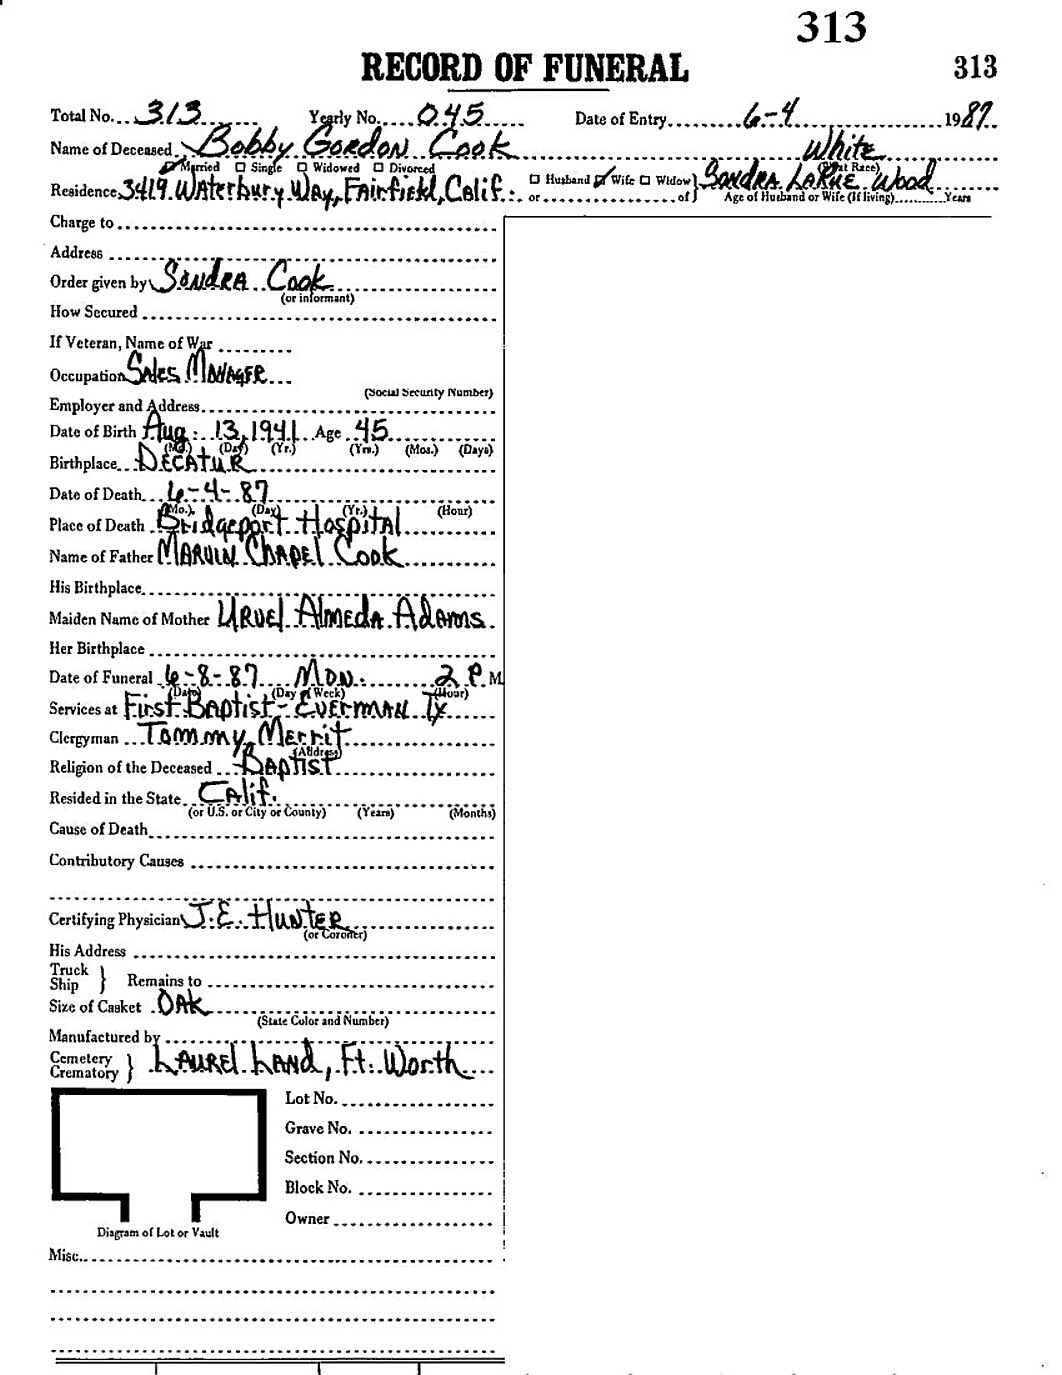 313
RECORD OF FUNERAL 313
Total No. 313 Yearly No. 045 Date of Entry 6-4 1987
Name of Deceased Bobby Gordon Cook White
Married Single Widowed Divorced (What Race)
Residence 3419 Waterbury Way, Fairfield, Calif. or Husband Wife Widow of } Sondra LaRue Wood
Age of Husband or Wife (If living) Years
Charge to
Address
Order given by Sondra Cook
(or informant)
How Secured
If Veteran, Name of War
Occupation Sales Manager
(Social Security Number)
Employer and Address
Date of Birth Aug. 13, 1941 Age 45
(Mo.) (Day) (Yr.) (Yrs.) (Mos.) (Days)
Birthplace Decatur
Date of Death 6-4-87
(Mo.) (Day) (Yr.) (Hour)
Place of Death Bridgeport Hospital
Name of Father Marvin Chapel Cook
His Birthplace
Maiden Name of Mother Uruel Almeda Adams
Her Birthplace
Date of Funeral 6-8-87 Mon. 2 P M
(Date) (Day of Week) (Hour)
Services at First Baptist - Everman Tx
Clergyman Tommy Merrit
(Address)
Religion of the Deceased Baptist
Resided in the State Calif.
(or U.S. or City or County) (Years) (Months)
Cause of Death
Contributory Causes
Certifying Physician J.E. Hunter
(or Coroner)
His Address
Truck
Ship } Remains to
Size of Casket Oak
(State Color and Number)
Manufactured by
Cemetery
Crematory } Laurel Land, Ft. Worth
Lot No.
Grave No.
Section No.
Block No.
Owner
Diagram of Lot or Vault
Misc.